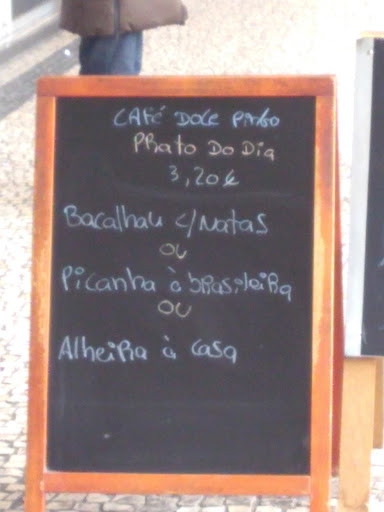 CAFé DOCE PINGO
PRato Do Dia
3,20€
Bacalhau c/Natas
OU
Picanha à brasileira
OU
Alheira à casa